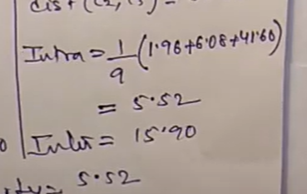 dist (C2, C3) =
Intra = 1/9 (1.96+6.08+41.66)
= 5.52
Inter = 15.90
5.52